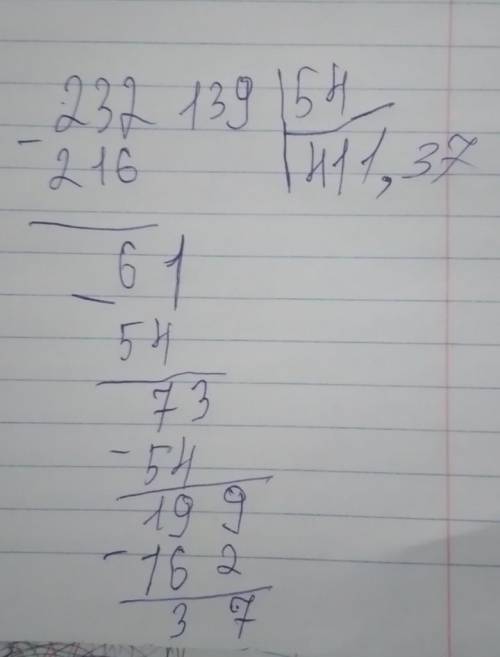 232 139 | 54
- 216 | 411, 37
61
- 54
73
- 54
199
- 162
37